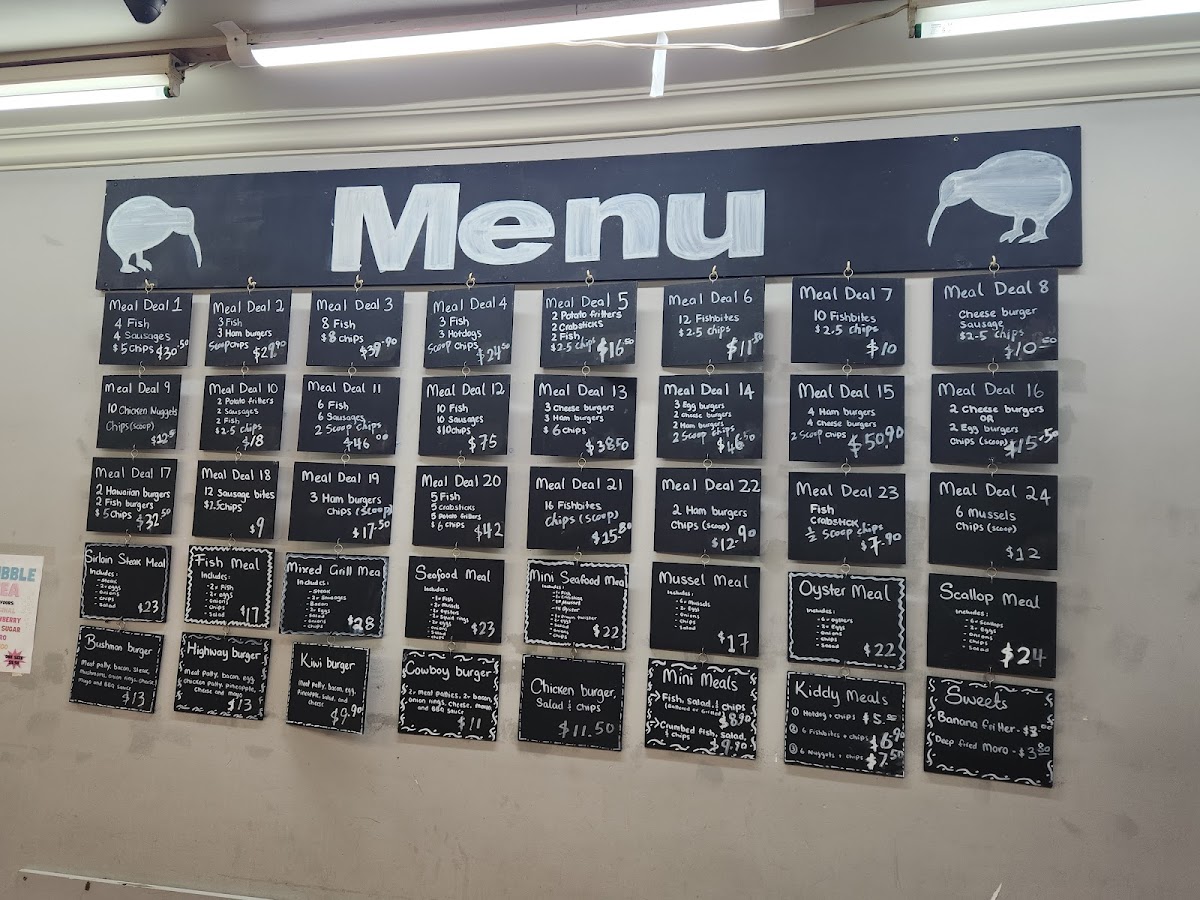 Menu
Meal Deal 1
4 Fish
4 Sausages
$5 Chips $30.50
Meal Deal 2
3 Fish
3 Ham burgers
Scoop Chips $29.90
Meal Deal 3
8 Fish
$8 Chips
$39.90
Meal Deal 4
3 Fish
3 Hotdogs
Scoop Chips $24.50
Meal Deal 5
2 Potato fritters
2 Crabsticks
2 Fish
$2.5 Chips $16.50
Meal Deal 6
12 Fishbites
$2.5 Chips
$11.50
Meal Deal 7
10 Fishbites
$2.5 Chips
$10
Meal Deal 8
Cheese burger
Sausage
$2-5 Chips
$10.50
Meal Deal 9
10 Chicken Nuggets
Chips (scoop)
$12.5
Meal Deal 10
2 Potato fritters
2 Sausages
2 Fish
$2.5 Chips
$18
Meal Deal 11
6 Fish
6 Sausages
2 Scoop Chips
$46.00
Meal Deal 12
10 Fish
10 Sausages
$10 Chips
$75
Meal Deal 13
3 Cheese burgers
3 Ham burgers
$6 Chips
$38.50
Meal Deal 14
3 Egg burgers
2 Cheese burgers
2 Ham burgers
2 Scoop Chips
$46.50
Meal Deal 15
4 Ham burgers
4 Cheese burgers
2 Scoop Chips $50.90
Meal Deal 16
2 Cheese burgers
OR
2 Egg burgers
Chips (scoop) $15.50
Meal Deal 17
2 Hawaiian burgers
2 Fish burgers
$5 Chips $32.50
Meal Deal 18
12 Sausage bites
$2.5 Chips
$9
Meal Deal 19
3 Ham burgers
Chips (scoop)
$17.50
Meal Deal 20
5 Fish
5 Crabsticks
5 Potato fritters
$6 Chips $42
Meal Deal 21
16 Fishbites
Chips (scoop)
$15.80
Meal Deal 22
2 Ham burgers
Chips (scoop)
$12.90
Meal Deal 23
Fish
Crabstick
½ Scoop Chips
$7.90
Meal Deal 24
6 Mussels
Chips (scoop)
$12
Sirloin Steak Meal
Includes:
- Steak
- 2x eggs
- Onions
- Chips
- Salad
$23
Fish Meal
Includes:
- 2x Fish
- 2x eggs
- Onions
- Chips
- Salad
$17
Mixed Grill Meal
Includes:
- Steak
- 2x Sausages
- Bacon
- 2x Eggs
- Onions
- Chips
- Salad
$28
Seafood Meal
Includes:
- 2x Fish
- 2x Mussels
- 2x Oysters
- 2x Squid rings
- 2x Eggs
- Onions
- Chips
- Salad
$23
Mini Seafood Meal
Includes:
- 1x Fish
- Chips
- Salad
$22
Mussel Meal
Includes:
- 6x Mussels
- 2x Eggs
- Onions
- Chips
- Salad
$17
Oyster Meal
Includes:
- 6x Oysters
- 2x Eggs
- Onions
- Chips
- Salad
$22
Scallop Meal
Includes:
- 6x Scallops
- 2x Eggs
- Onions
- Chips
- Salad
$24
Bushman burger
Meat patty, bacon, steak,
mushrooms, onion rings, cheese,
Mayo and BBQ sauce
$13
Highway burger
Meat patty, bacon, egg,
chicken patty, pineapple,
Cheese and mayo
$13
Kiwi burger
Meat patty, bacon, egg,
Pineapple, Salad, and
cheese
$9.90
Cowboy burger
2x meat patties, 2x bacon,
onion rings, cheese, mayo
and BBQ sauce
$11
Chicken burger,
Salad & chips
$11.50
Mini Meals
Fish, salad, & chips
(Battered or Grilled)
$8.90
Crumbed fish, Salad,
& chips
$9.90
Kiddy Meals
1 Hotdog + chips $5.50
2 6 Fishbites + chips $6.90
3 6 Nuggets + chips $7.50
Sweets
Banana fritter - $3.00
Deep fried Moro - $3.80